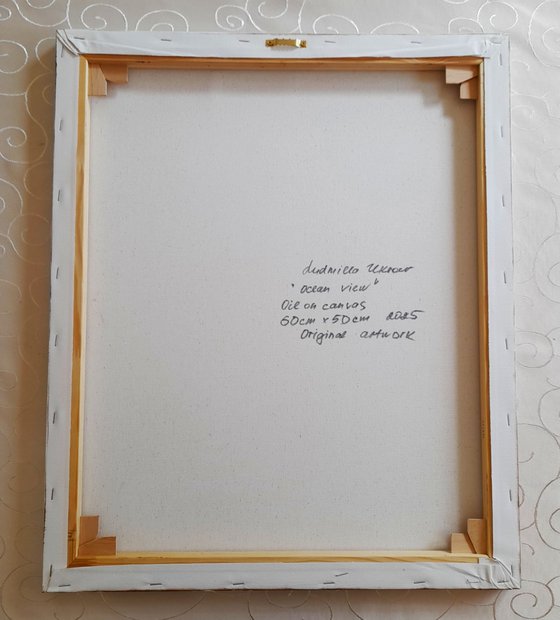 Ludmilla Ukrow
"Ocean view"
Oil on canvas
60cm x 50cm 2025
Original artwork